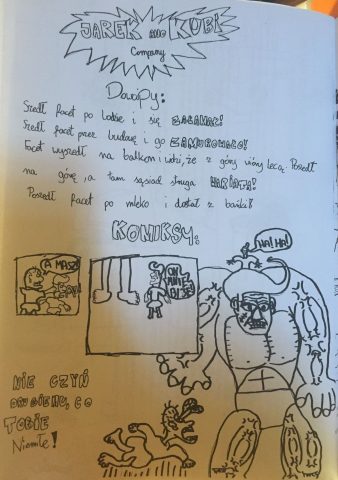 JAREK AND KUBI
Company
Dowcipy:
Szedł facet po lodzie i się ZAŁAMAŁ!
Szedł facet przez budowę i go ZAMUROWAŁO!
Facet wyszedł na balkon i widzi, że z góry wióry lecą. Poszedł
na górę, a tam sąsiad struga WARIATA!
Poszedł facet po mleko i dostał z bańki!
KOMIKSY:
HA! HA!
A MASZ!
ON
MNIE
BIJE!
NIE CZYŃ
DRUGIEMU, CO
TOBIE
Niemiłe!